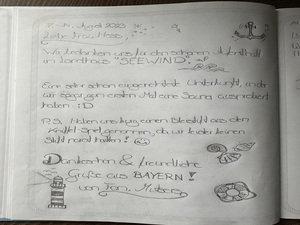 Liebe Frau Hesse,
Wir bedanken uns für den schönen Aufenthalt
im Ferienhaus "SEEWIND".
Eine sehr schön eingerichtete Unterkunft, wo
wir sogar zum ersten Mal eine Sauna ausprobiert
haben :D
P.S. Haben uns kurz einen Bleistift aus dem
Kniffel-Spiel genommen, da wir leider keinen
Stift parat hatten!
Dankeschön & freundliche
Grüße aus BAYERN!
von Fam.